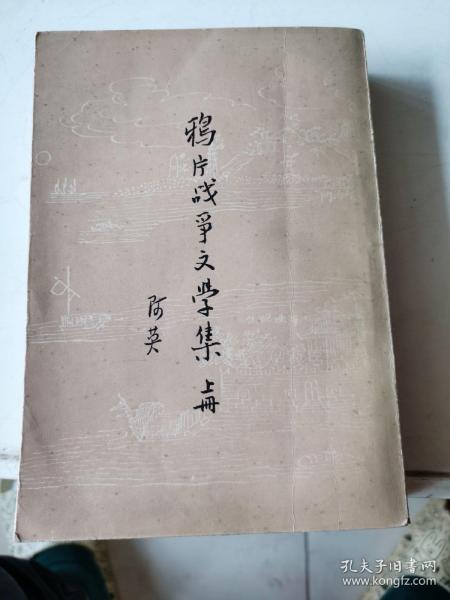 鴉片战爭文学集 上冊
阿英
孔夫子旧书网
www.kongfz.com